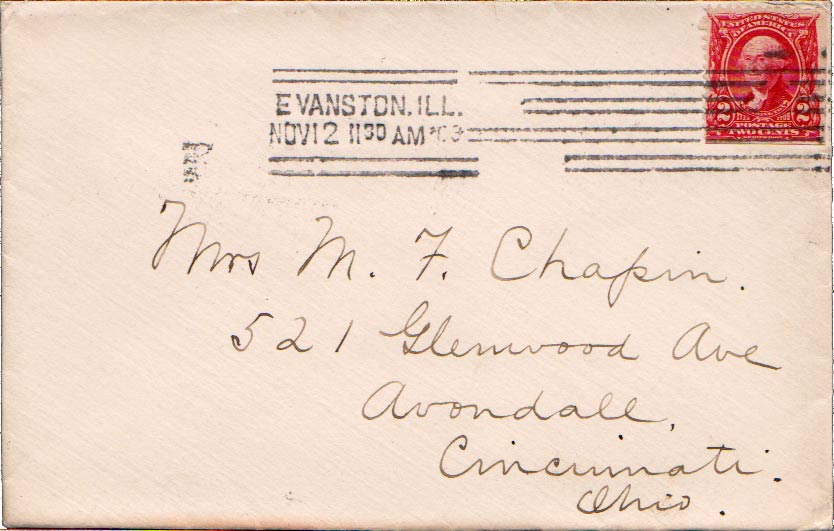 UNITED STATES
OF AMERICA
2 2
POSTAGE
TWO CENTS
EVANSTON, ILL.
NOV 12 11 30 AM '03
Mrs M. F. Chapin.
521 Glenwood Ave
Avondall,
Cincinnati.
Ohio.